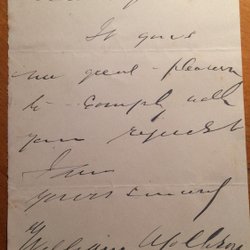 It gives
me great pleasure
to comply with
your request
I am
yours sincerely
William